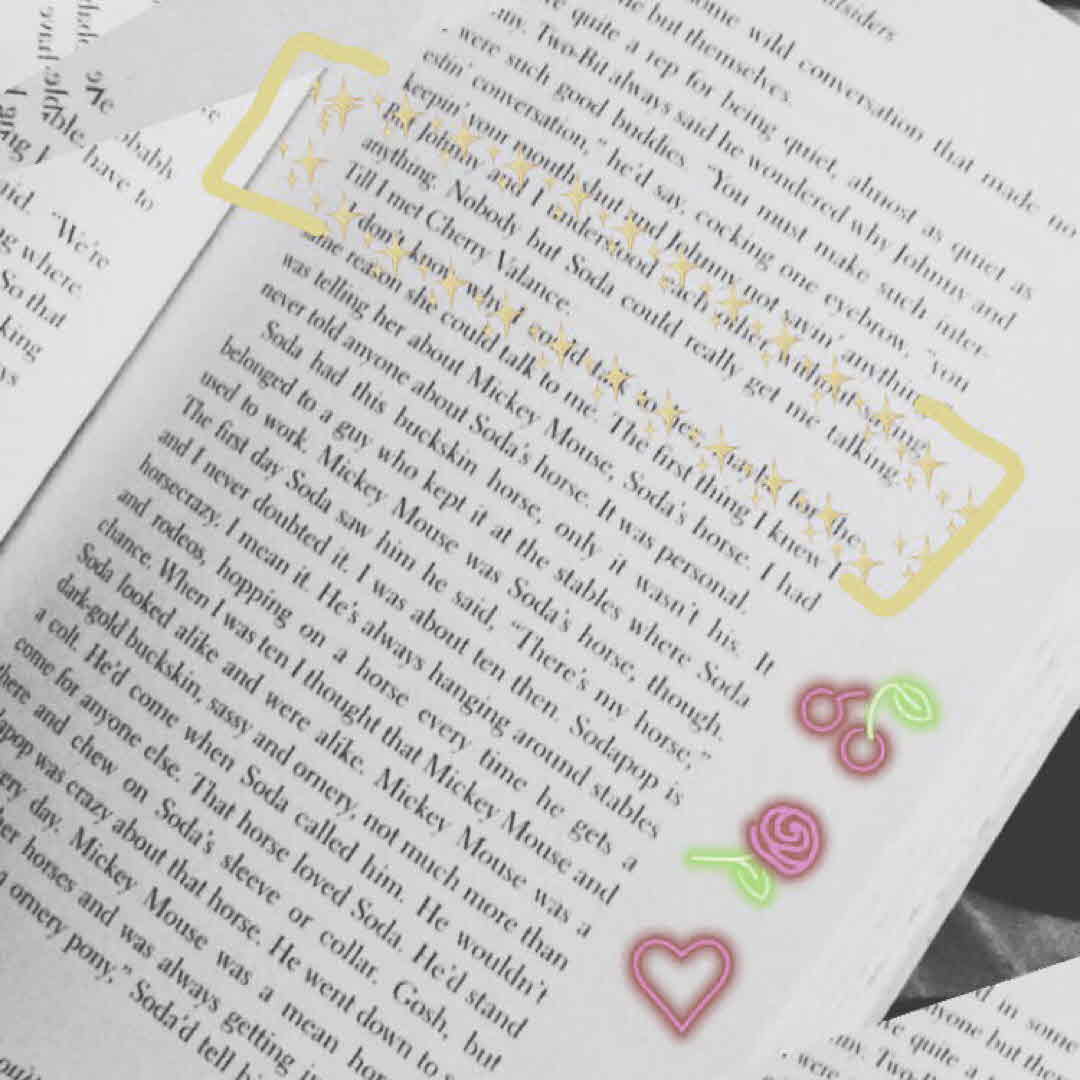 utsiders
ome wild conversation that made no
ne but themselves.
ve quite a rep for being quiet, almost as quiet as
my. Two-Bit always said he wondered why Johnny and
were such good buddies. "You must make such inter-
estin' conversation," he'd say, cocking one eyebrow, "you
keepin' your mouth shut and Johnny not sayin' anything
But Johnny and I understood each other without saying
anything. Nobody but Soda could really get me talking.
Till I met Cherry Valance.
I don't know why I could talk to her; maybe for the
same reason she could talk to me. The first thing I knew I
was telling her about Mickey Mouse, Soda's horse. I had
never told anyone about Soda's horse. It was personal.
Soda had this buckskin horse, only it wasn't his. It
belonged to a guy who kept it at the stables where Soda
used to work. Mickey Mouse was Soda's horse, though.
The first day Soda saw him he said, "There's my horse,"
and I never doubted it. I was about ten then. Sodapop is
horsecrazy. I mean it. He's always hanging around stables
and rodeos, hopping on a horse every time he gets a
chance. When I was ten I thought that Mickey Mouse and
Soda looked alike and were alike. Mickey Mouse was a
dark-gold buckskin, sassy and ornery, not much more than
a colt. He'd come when Soda called him. He wouldn't
come for anyone else. That horse loved Soda. He'd stand
there and chew on Soda's sleeve or collar. Gosh, but
apop was crazy about that horse. He went down to s
ery day. Mickey Mouse was a mean hor
er horses and was always getting i
ornery pony," Soda'd tell hi
bable.
have to
obably
aid. "We're
ng where
So that
king
ys
d in some
nyone but ther
ke quite a
my. Two-
were